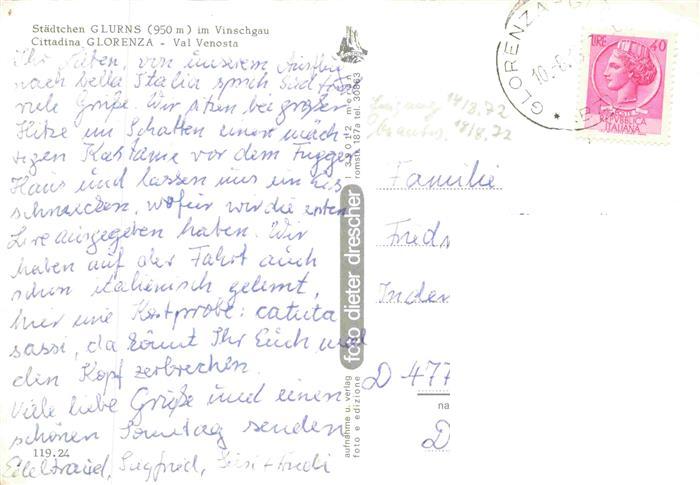 Städtchen GLURNS (950 m) im Vinschgau
Cittadina GLORENZA - Val Venosta
Ihr Lieben, von unserem Ausflug
nach bella Italia sprich Südtirol
viele Grüße. Wir sitzen bei großer
Hitze im Schatten einer mäch
tigen Kastanie vor dem Fugger
Haus und lassen uns ein Eis
schmecken, wofür wir die ersten
Lire ausgegeben haben. Wir
haben auf der Fahrt auch
schon italienisch gelernt,
hier eine Kostprobe: caduta
sassi, da könnt Ihr Euch mal
den Kopf zerbrechen.
Viele liebe Grüße und einen
schönen Sonntag senden
Edeltraud, Siegfried,
119.24
foto dieter drescher
aufnahme u. verlag
foto e edizione
I 39012
romstr. 187a tel. 30863
14/8.72
14/8.72
GLORENZA
10.-6.
LIRE 40
REPVBBLICA
ITALIANA
Familie
Fried
Inden
D-477
na
D